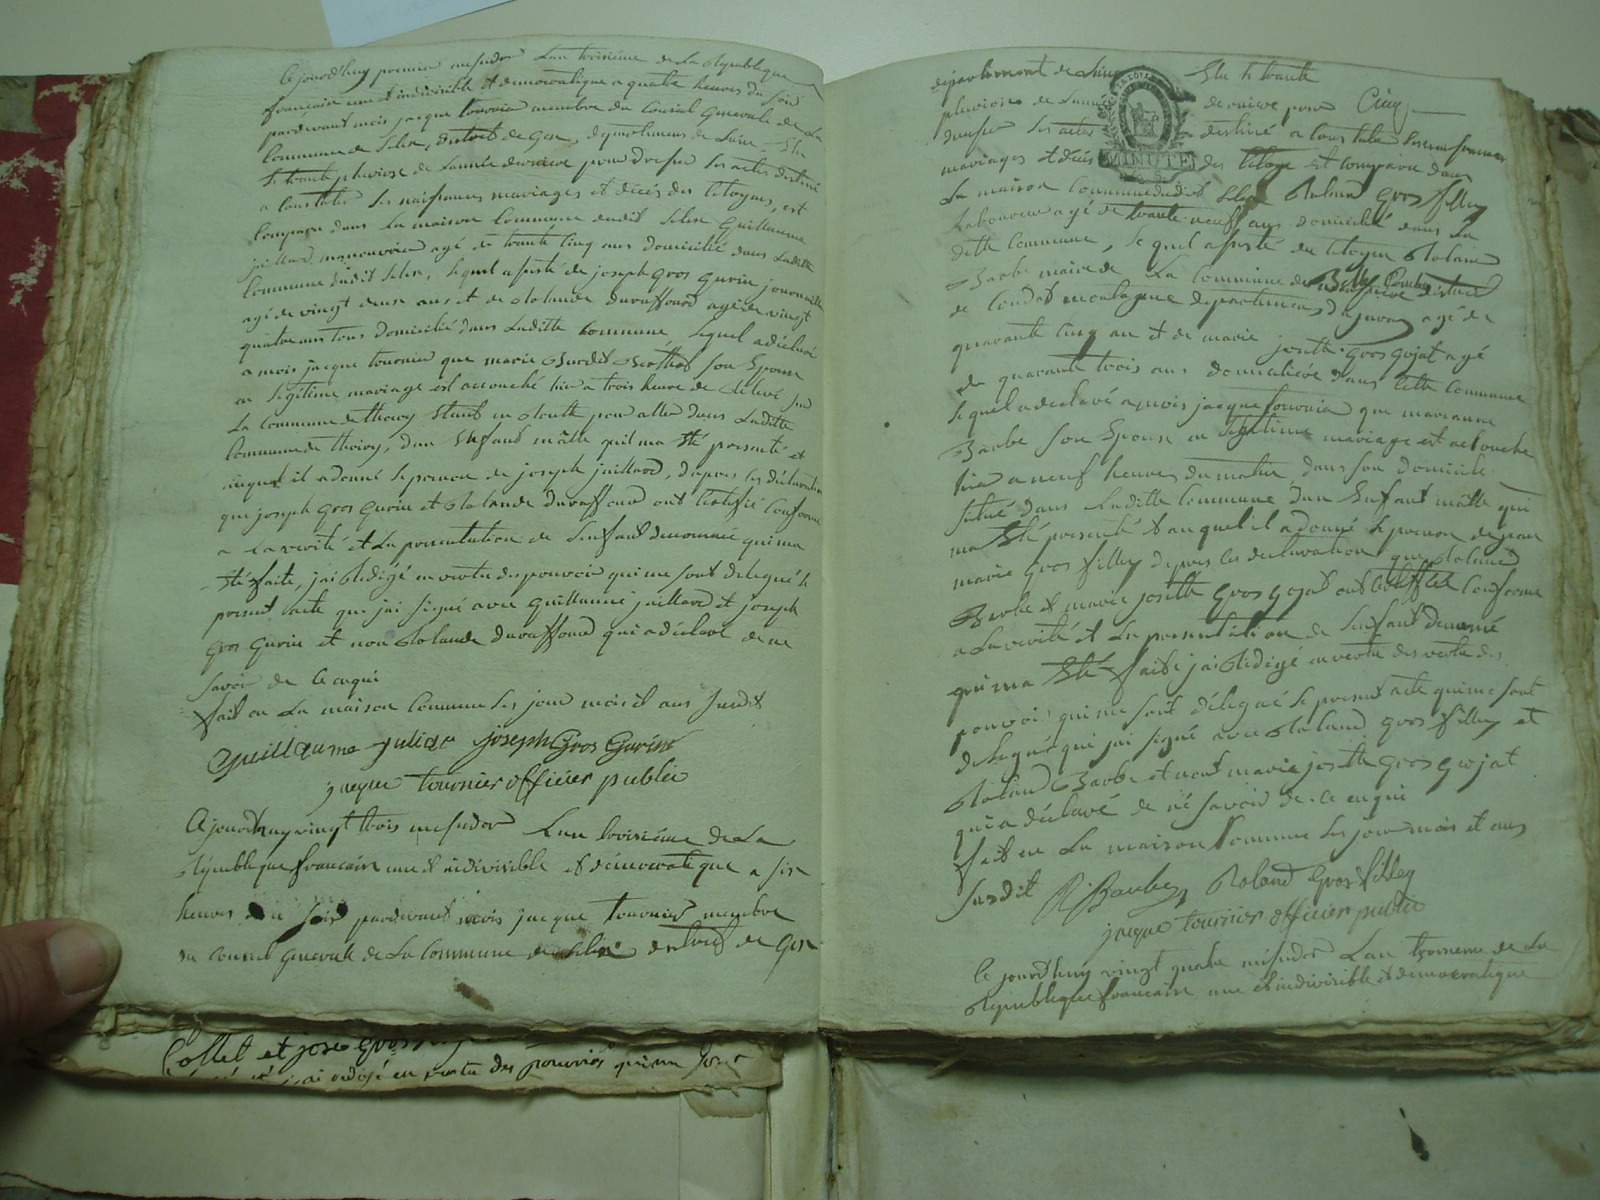 Cejourd'huy premier mesidor Lan troisieme de La Republique
francaise une et indivisible et democratique a quatre heures du soir
pardevant mois jacque tournier membre du Conseil General de La
Commune de Lelex, district de Gex, departement de Lain, Elu
Le trente pluviose de Lannée derniere pour dresser Les actes destiné
a Constater Les naissances mariages et décès des Citoyens, est
Comparu dans La maison Commune dudit Lelex Guillaume
juillard manouvrier agé de trente Cinq ans domicilié dans Ladite
Commune dudit Lelex, Lequel assisté de joseph Gros Gurin journallier
agé de vingt deux ans et de Rolande duraffourd agée de vingt
quatre ans tous domicilié dans Laditte Commune Lequel a déclaré
a mois jacque tournier que marie son Epouse
en Légitime mariage est accouché hier a trois heure de sur
La Commune de thoiry Etant en Routte pour aller dans Laditte
Commune de thoiry, d'un Enfant mâlle quil ma Eté presenté et
auquel il a donné Le prenom de joseph juillard, dapres les déclaration
que joseph Gros Gurin et Rolande duraffourd ont Certifié Conforme
a La verité et La presentation de Lenfant denommé qui ma
Eté faite, jai Redigé en vertu des pouvoir qui me sont delegué Le
present acte que jai signé avec Guillaume juillard et joseph
Gros Gurin et non Rolande duraffourd qui a déclaré de ne
savoir de Ce enqui
fait en La maison Commune Les jour mois et ans susdit
Guillaume juliar joseph Gros Gurin
jacque tournier officier public
Cejourdhuy vingt trois mesidor Lan troisiéme de La
Republique francaise une et indivisible et democratique a six
heures du soir pardevant mois jacque tournier membre
du Conseil Generale de La Commune de Lelex district de Gex
Collet et jose Gros
jai redigé en vertu des pouvoirs qui me sont
departement de Lain Elu Le trente
pluviose de Lannée derniere pour Cinq
dresser Les actes destiné a Constater Les naissances
MINUTE
mariages et décès des Citoyens est Comparu dans
La maison Commune dudit Lelex Roland Gros filley
Laboureur agé de trente neuf ans domicilié dans La
ditte Commune, Lequel assisté du Citoyen Roland
Barbe maire de La Commune de district
de Condat montagne departement du jura agé de
quarante Cinq an et de marie josette Gros Gojat agé
de quarante trois ans domiciliée dans Cette Commune
Lequel a declaré a mois jacque tournier que marianne
Barbe son Epouse en Legitime mariage est accouché
hier a neuf heures du matin dans son domicile
situé dans Laditte Commune d'un Enfant mâlle qui
ma Eté presenté et auquel il a donné Le prenom de jean
marie Gros filley dapres les declaration que Roland
Barbe et marie josette Gros Gojat ont Certiffié Conforme
a La verité et La presentation de Lenfant denommé
qui ma Eté faite jai Redigé en vertu des vertu des
pouvoir qui me sont délegué Le present acte qui me sont
delegué qui jai signé avec Roland Gros filley et
Roland Barbe et non marie josette Gros Gojat
qui a déclaré de né savoir de ce enqui
fait en La maison Commune Les jour mois et ans
susdit R Barbe Roland Gros filley
jacque tournier officier public
Cejourdhuy vingt quatre mesidor Lan troisieme de La
Republique francaise une et indivisible et democratique